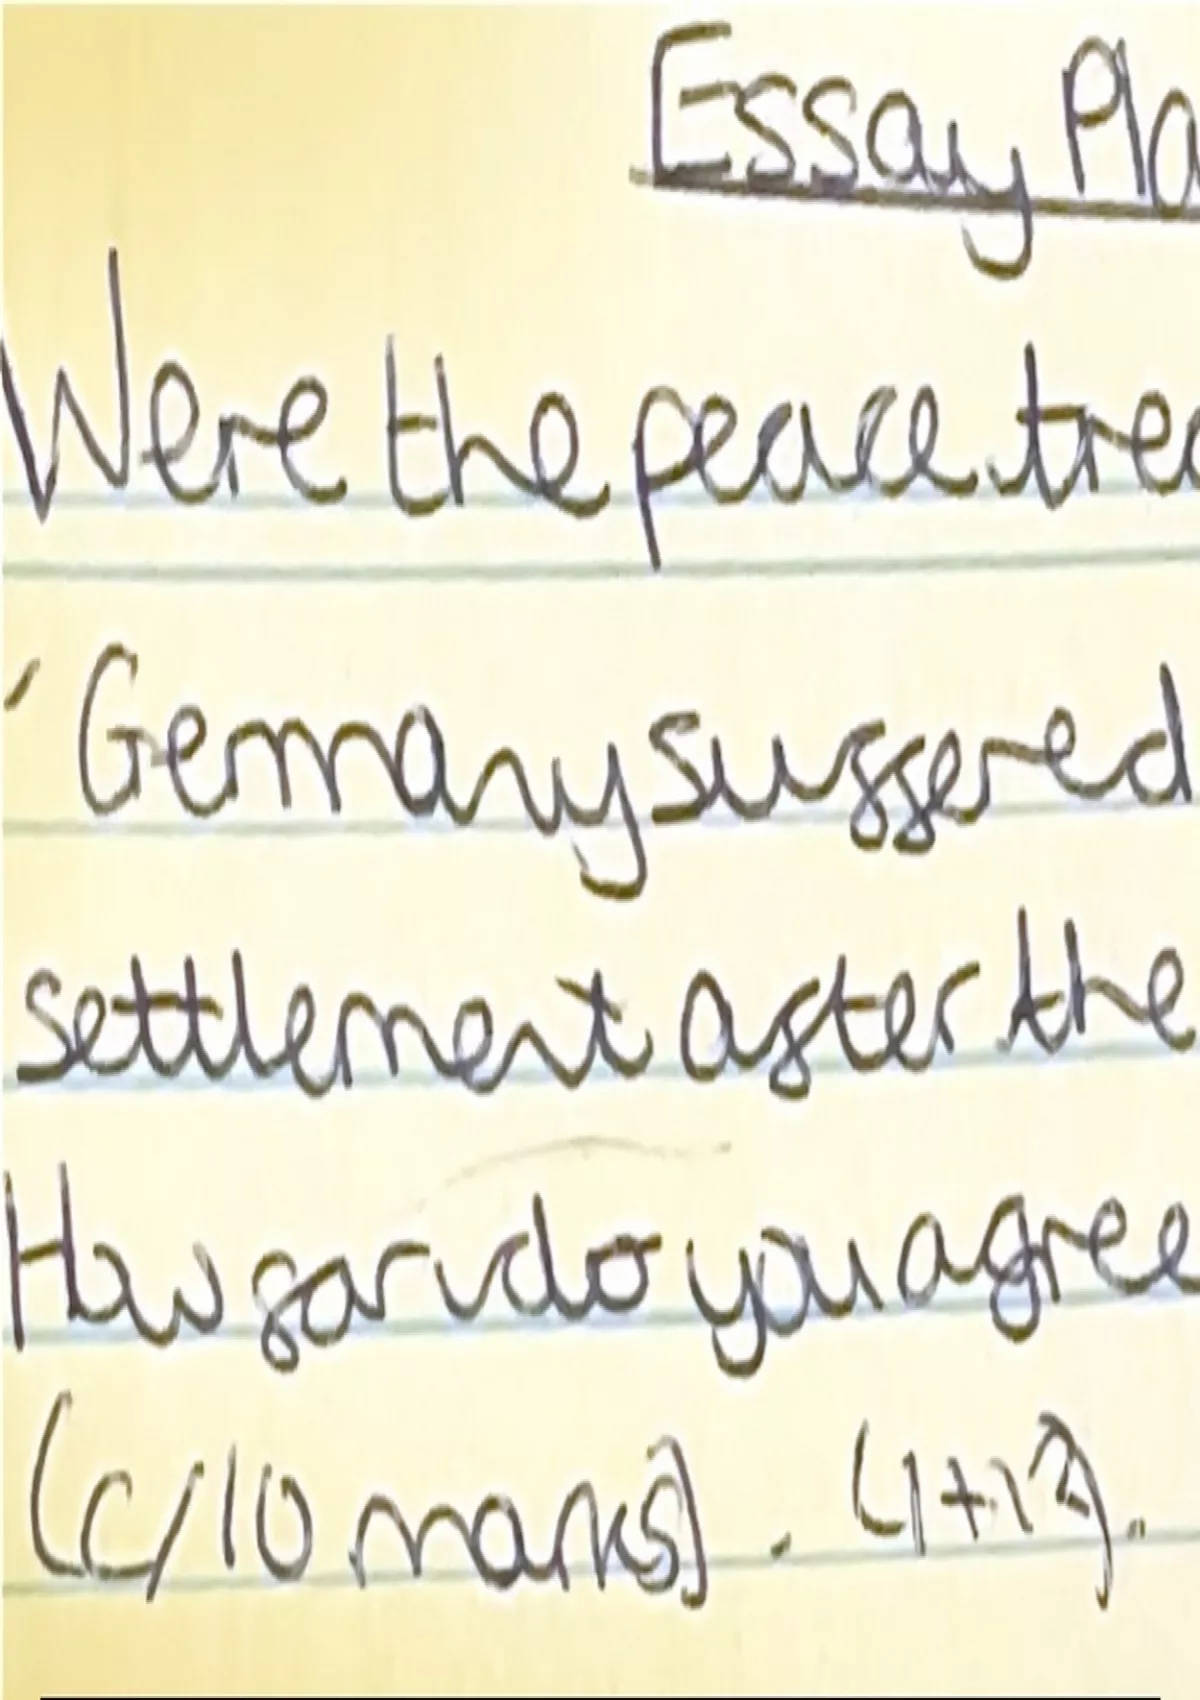 Essay Pla
Were the peace trea
' Germany suffered
settlement after the
How far do you agree
(c/10 marks). (1+12).